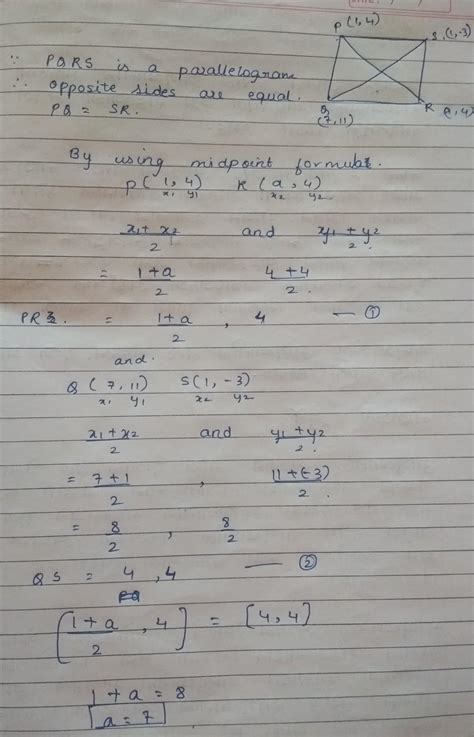 P(1, 4)
S (1,-3)
∵ PQRS is a parallelogram
∴ opposite sides are equal.
PQ = SR.
Q
(7, 11)
R (a, 4)
By using midpoint formula.
P(1, 4) R(a, 4)
x1 y1 x2 y2
x1 + x2 / 2 and y1 + y2 / 2.
= 1+a / 2 4+4 / 2.
PR = 1+a / 2 , 4 — ①
and.
Q (7, 11) S(1, -3)
x1 y1 x2 y2
x1 + x2 / 2 and y1 + y2 / 2.
= 7+1 / 2 , 11+(-3) / 2.
= 8 / 2 , 8 / 2
QS = 4 , 4 — ②
[1+a / 2 , 4] = [4, 4]
1 + a = 8
a = 7